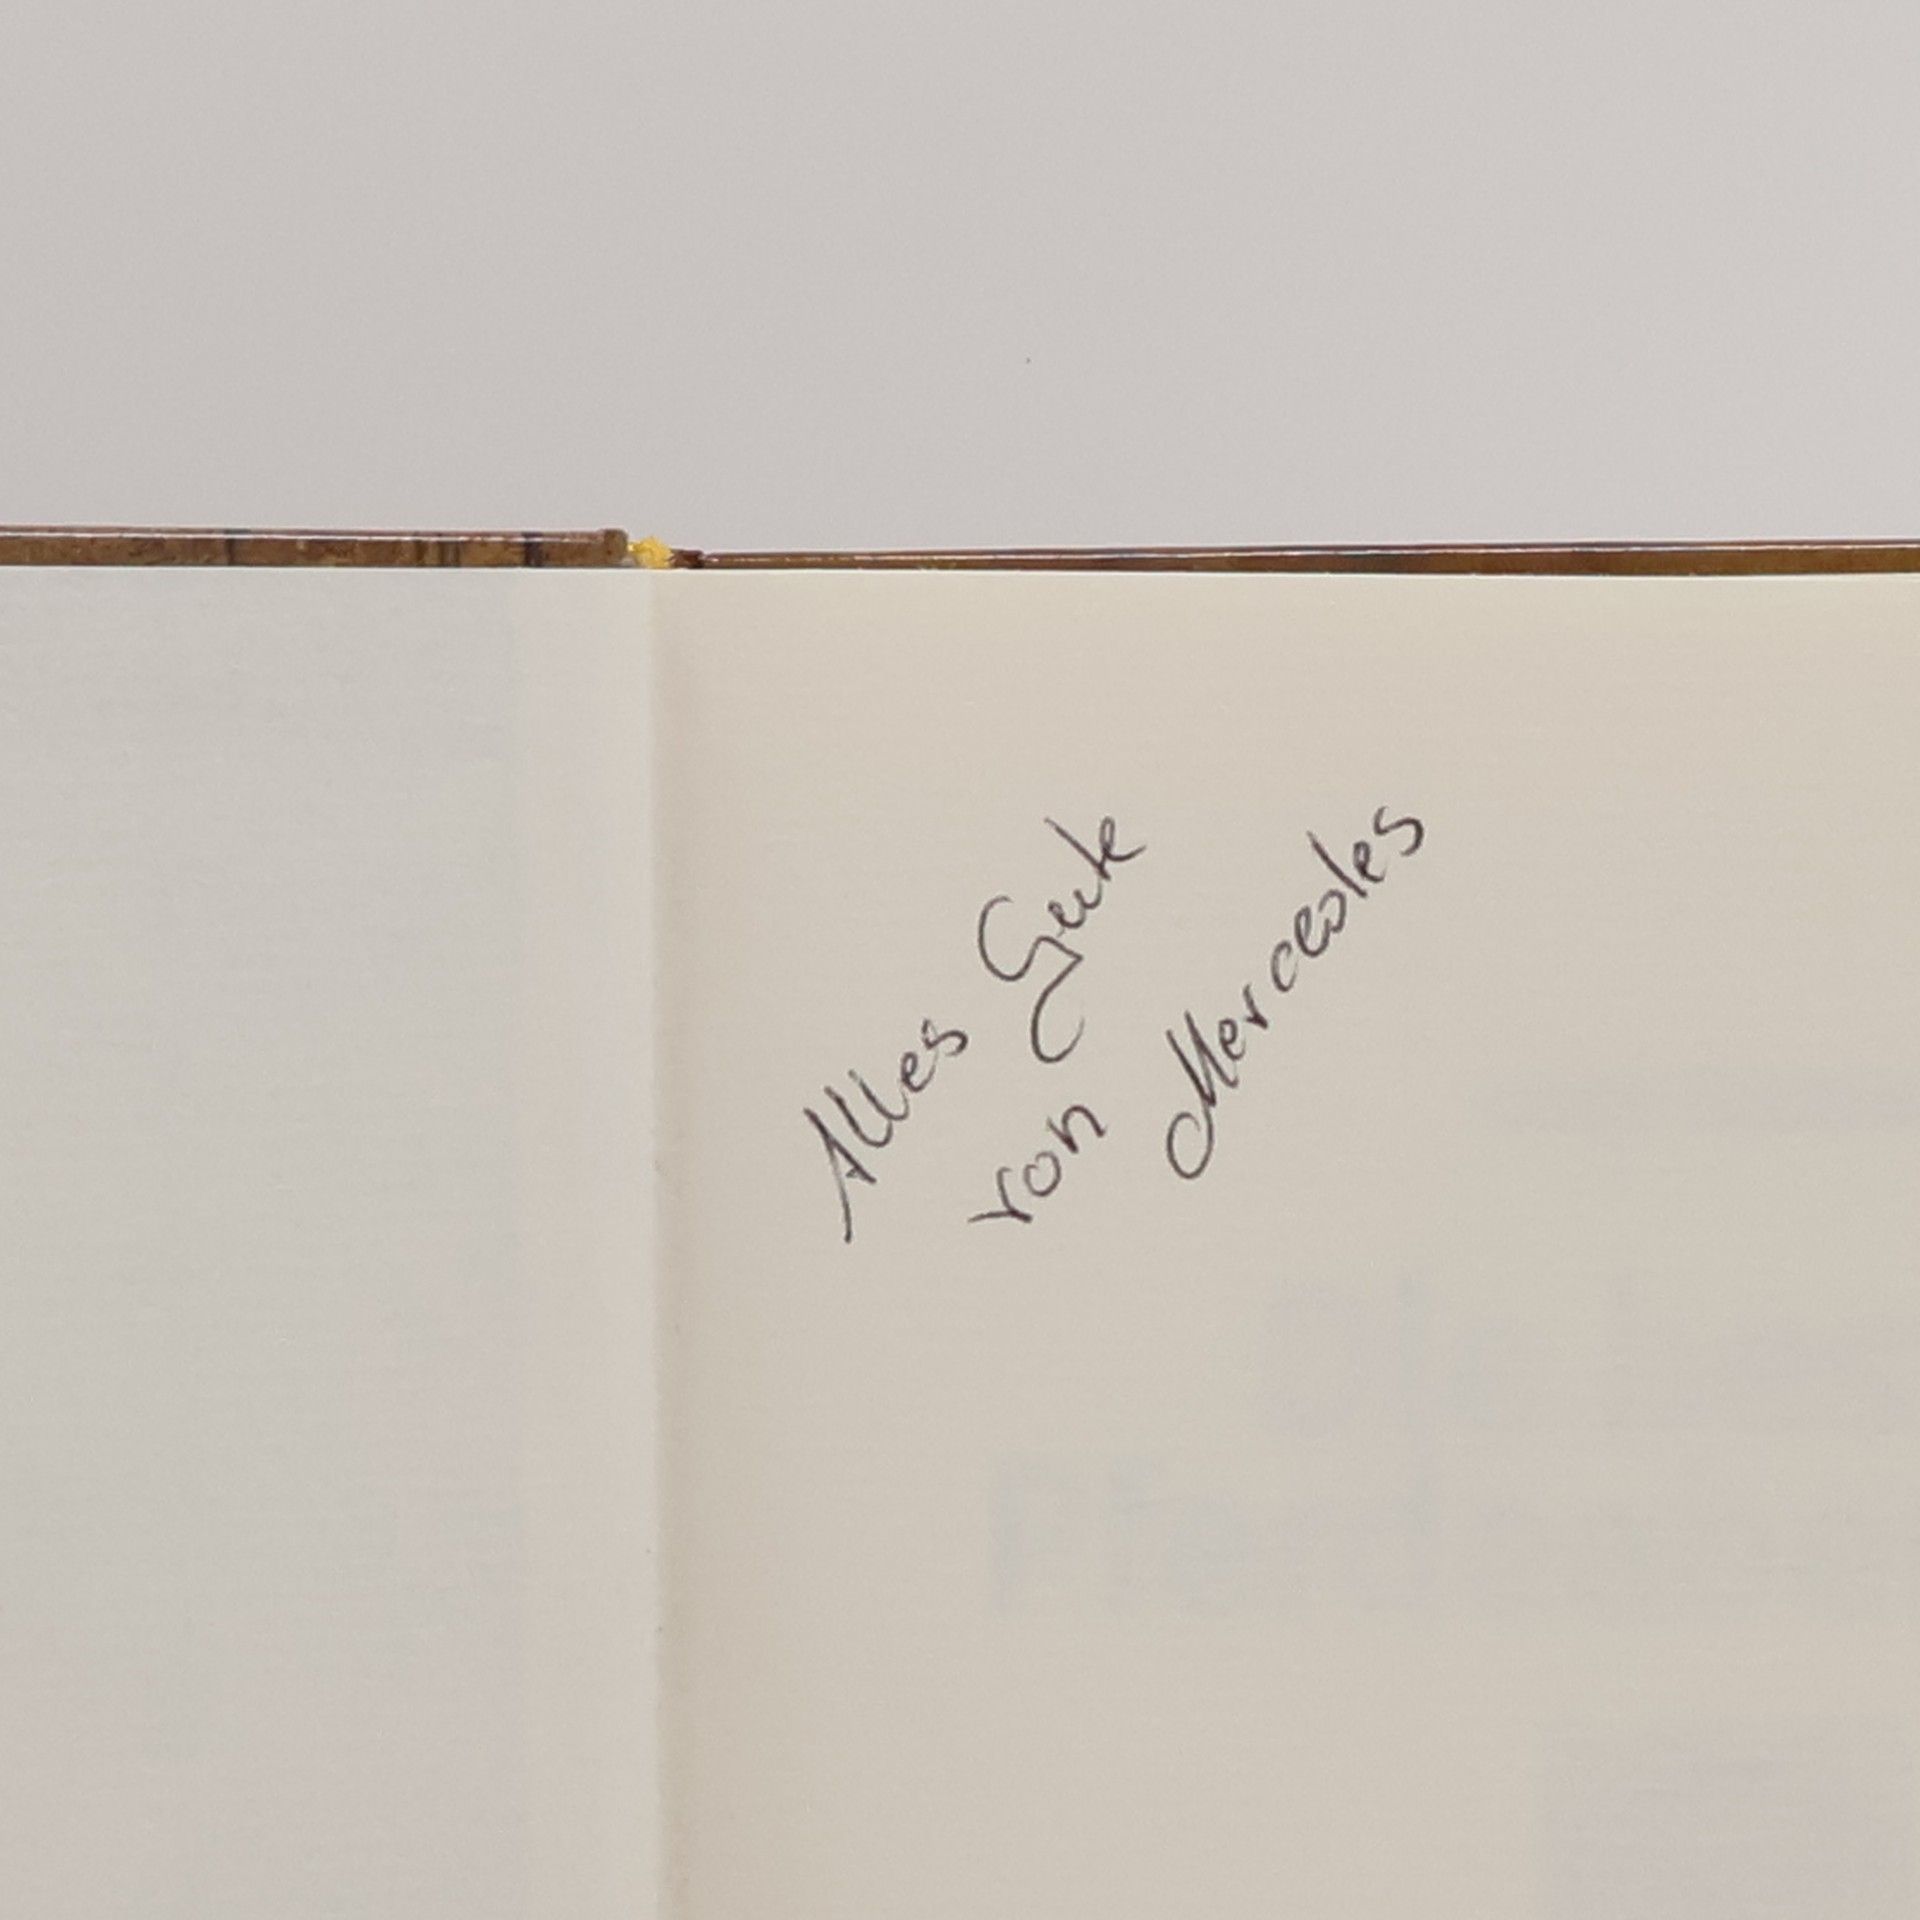 Alles Gute
von Mercedes